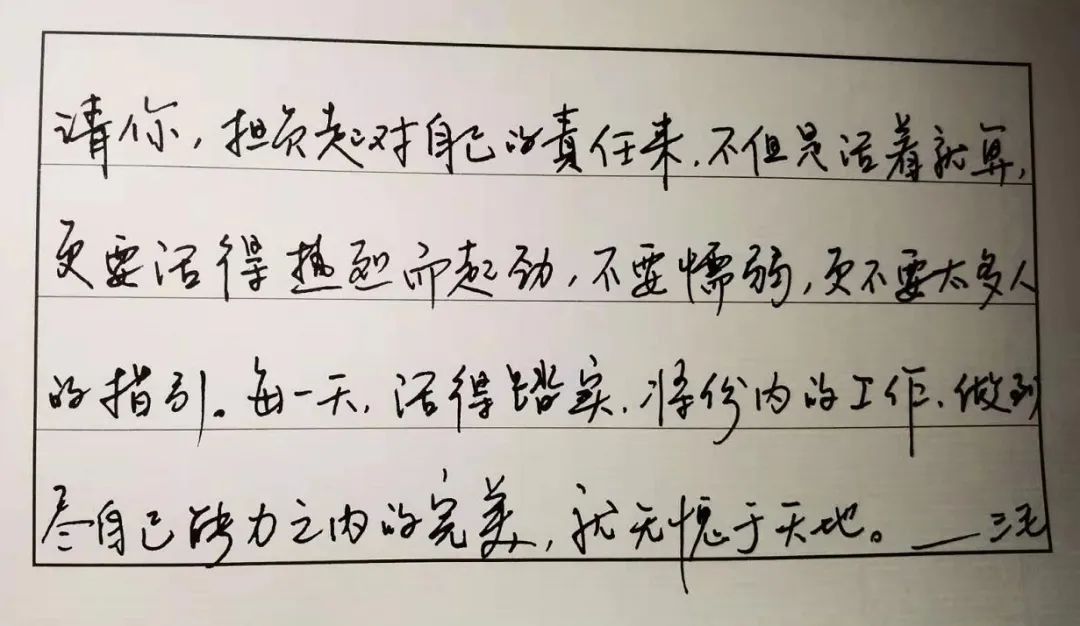 请你，担负起对自己的责任来，不但是活着就算，
更要活得热烈而起劲，不要懦弱，更不要太多人
的指引。每一天，活得踏实，将份内的工作，做到
尽自己能力之内的完美，就无愧于天地。——三毛